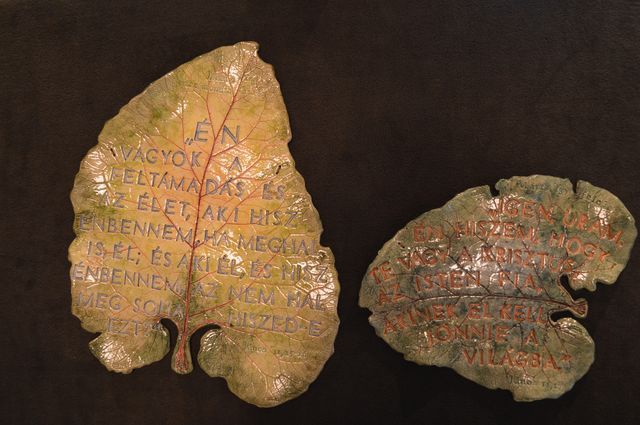 „ÉN
VAGYOK A
FELTÁMADÁS ÉS
AZ ÉLET, AKI HISZ
ÉNBENNEM, HA MEGHAL
IS, ÉL; ÉS AKI ÉL, ÉS HISZ
ÉNBENNEM, AZ NEM HAL
MEG SOHA. HISZED-E
EZT?"
János 11,25-26
„IGEN, URAM,
ÉN HISZEM, HOGY
TE VAGY A KRISZTUS,
AZ ISTEN FIA,
AKINEK EL KELL
JÖNNIE A
VILÁGBA."
János 11,27